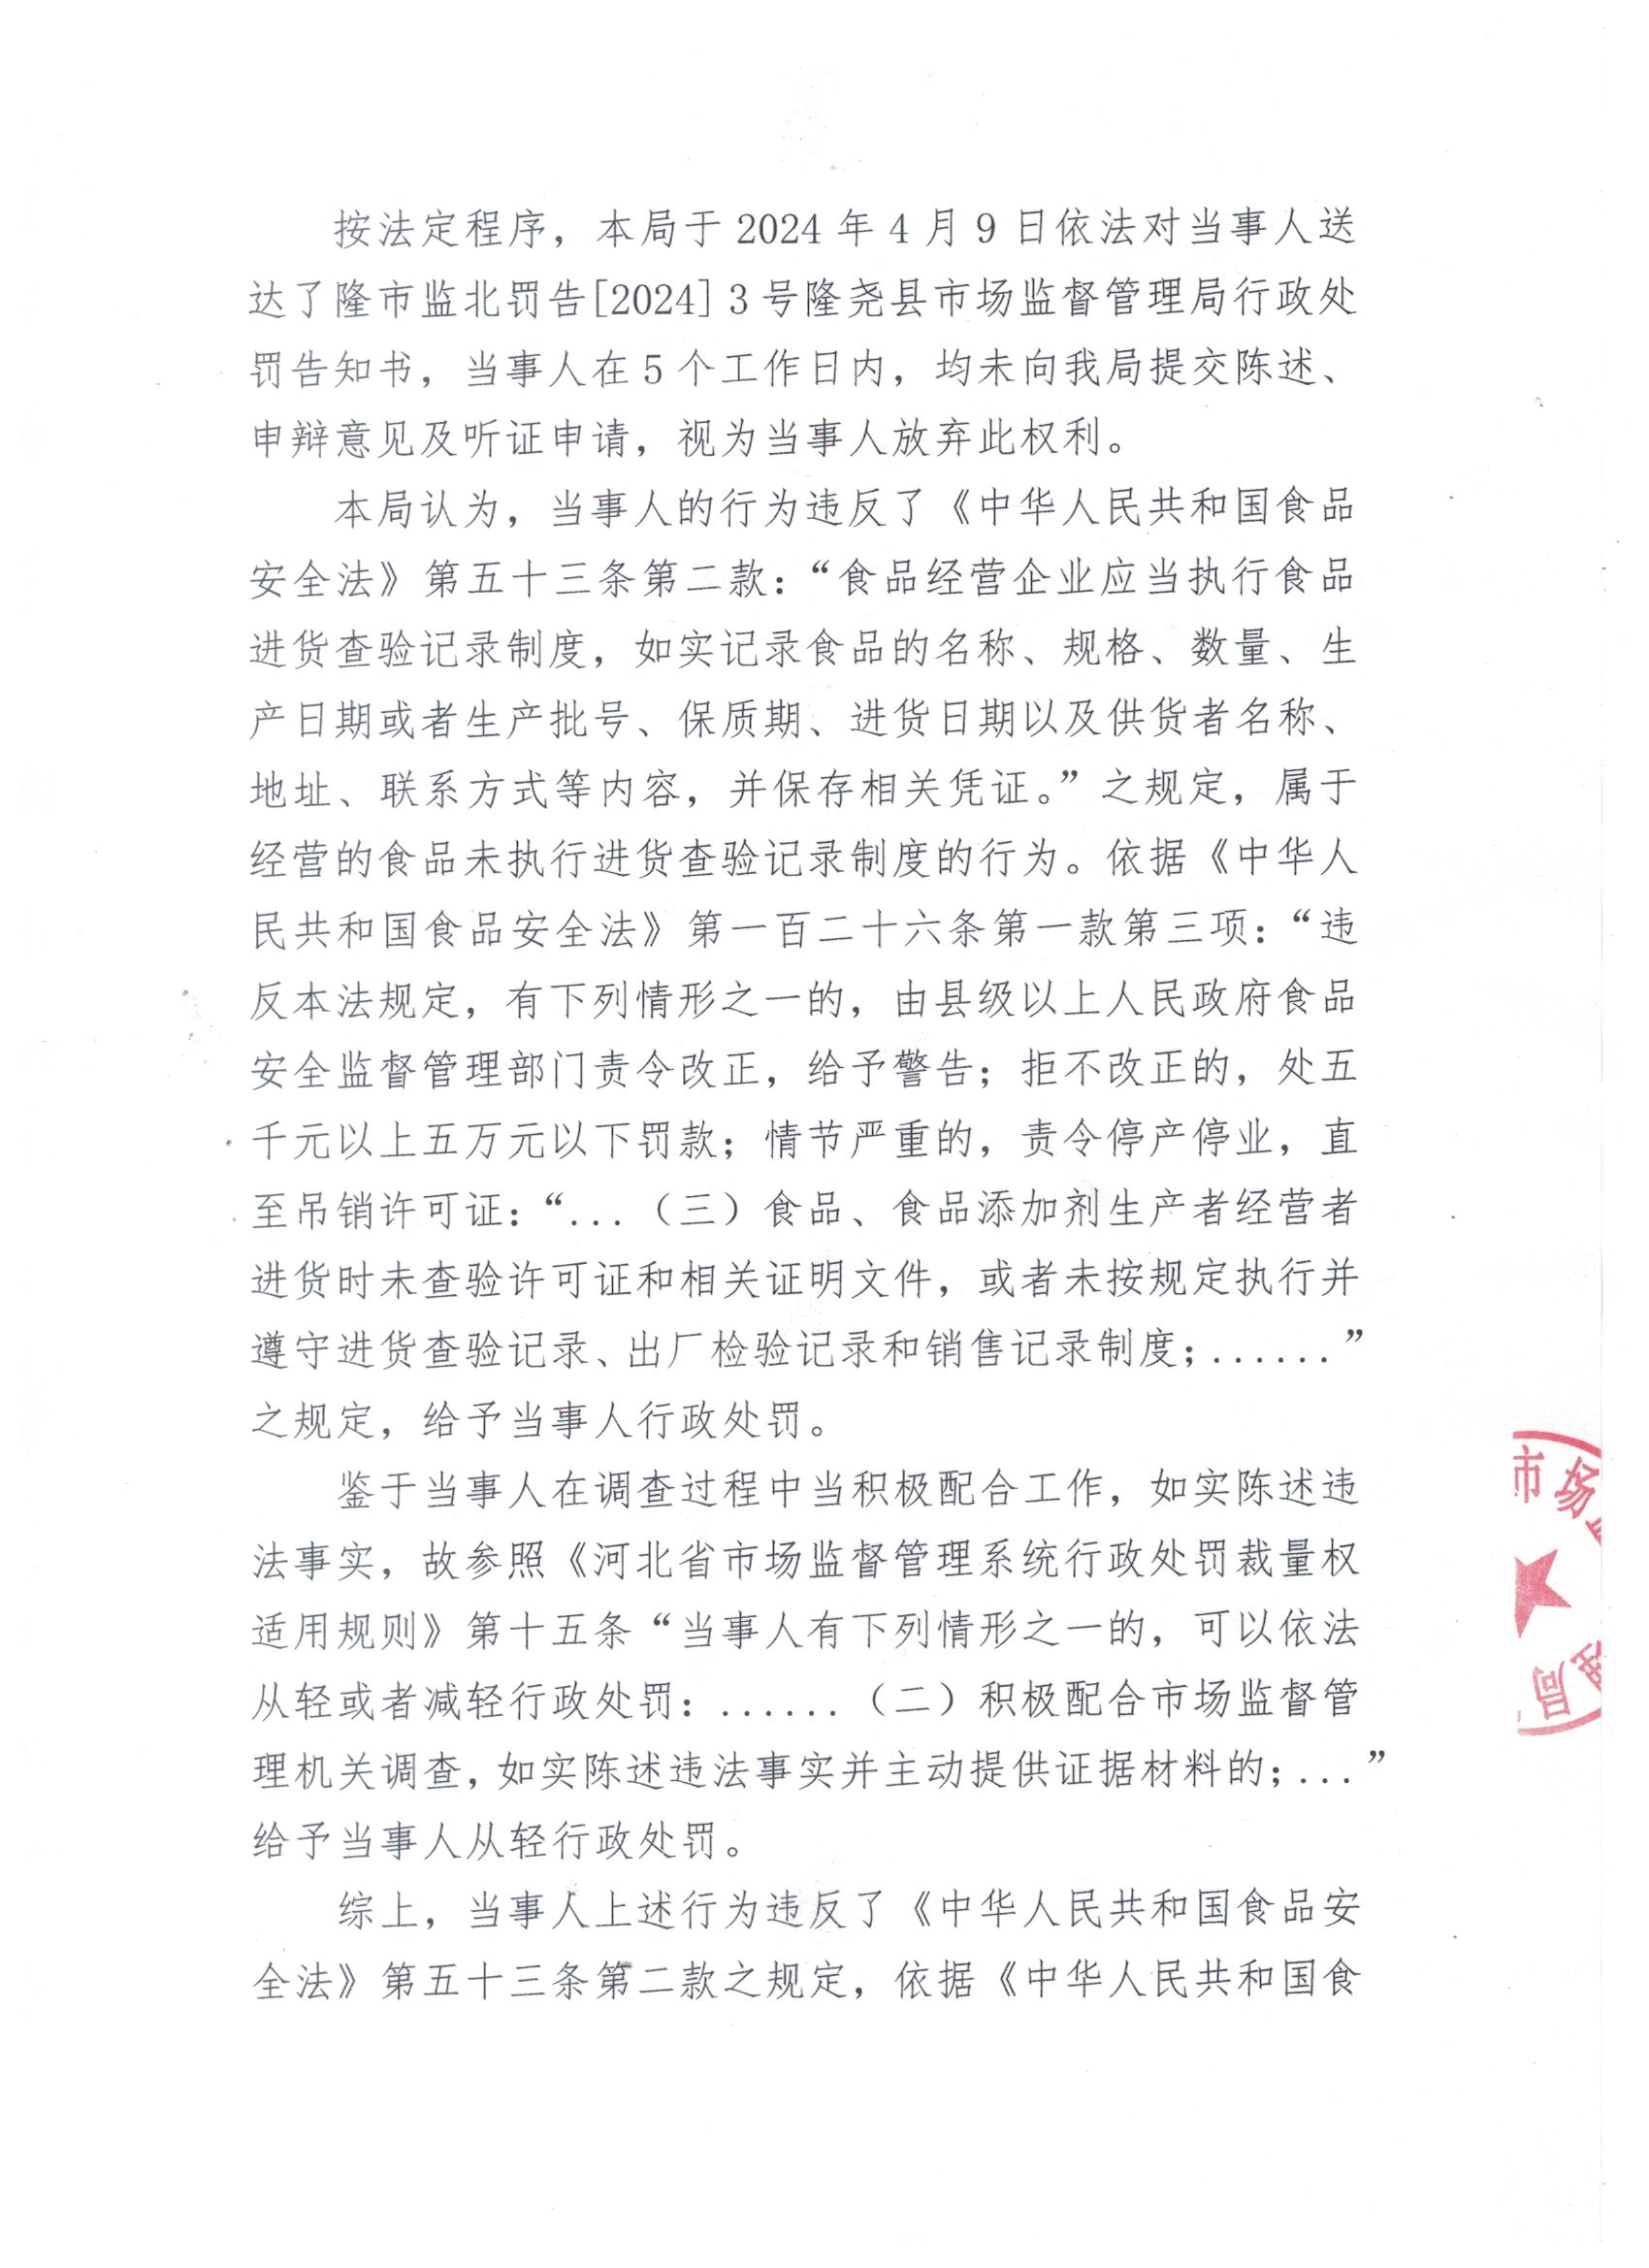 按法定程序，本局于 2024 年 4 月 9 日依法对当事人送
达了隆市监北罚告[2024] 3 号隆尧县市场监督管理局行政处
罚告知书，当事人在 5 个工作日内，均未向我局提交陈述、
申辩意见及听证申请，视为当事人放弃此权利。
本局认为，当事人的行为违反了《中华人民共和国食品
安全法》第五十三条第二款：“食品经营企业应当执行食品
进货查验记录制度，如实记录食品的名称、规格、数量、生
产日期或者生产批号、保质期、进货日期以及供货者名称、
地址、联系方式等内容，并保存相关凭证。”之规定，属于
经营的食品未执行进货查验记录制度的行为。依据《中华人
民共和国食品安全法》第一百二十六条第一款第三项：“违
反本法规定，有下列情形之一的，由县级以上人民政府食品
安全监督管理部门责令改正，给予警告；拒不改正的，处五
千元以上五万元以下罚款；情节严重的，责令停产停业，直
至吊销许可证：“...（三）食品、食品添加剂生产者经营者
进货时未查验许可证和相关证明文件，或者未按规定执行并
遵守进货查验记录、出厂检验记录和销售记录制度；......”
之规定，给予当事人行政处罚。
鉴于当事人在调查过程中当积极配合工作，如实陈述违
法事实，故参照《河北省市场监督管理系统行政处罚裁量权
适用规则》第十五条“当事人有下列情形之一的，可以依法
从轻或者减轻行政处罚：......（二）积极配合市场监督管
理机关调查，如实陈述违法事实并主动提供证据材料的；...”
给予当事人从轻行政处罚。
综上，当事人上述行为违反了《中华人民共和国食品安
全法》第五十三条第二款之规定，依据《中华人民共和国食
市场
局